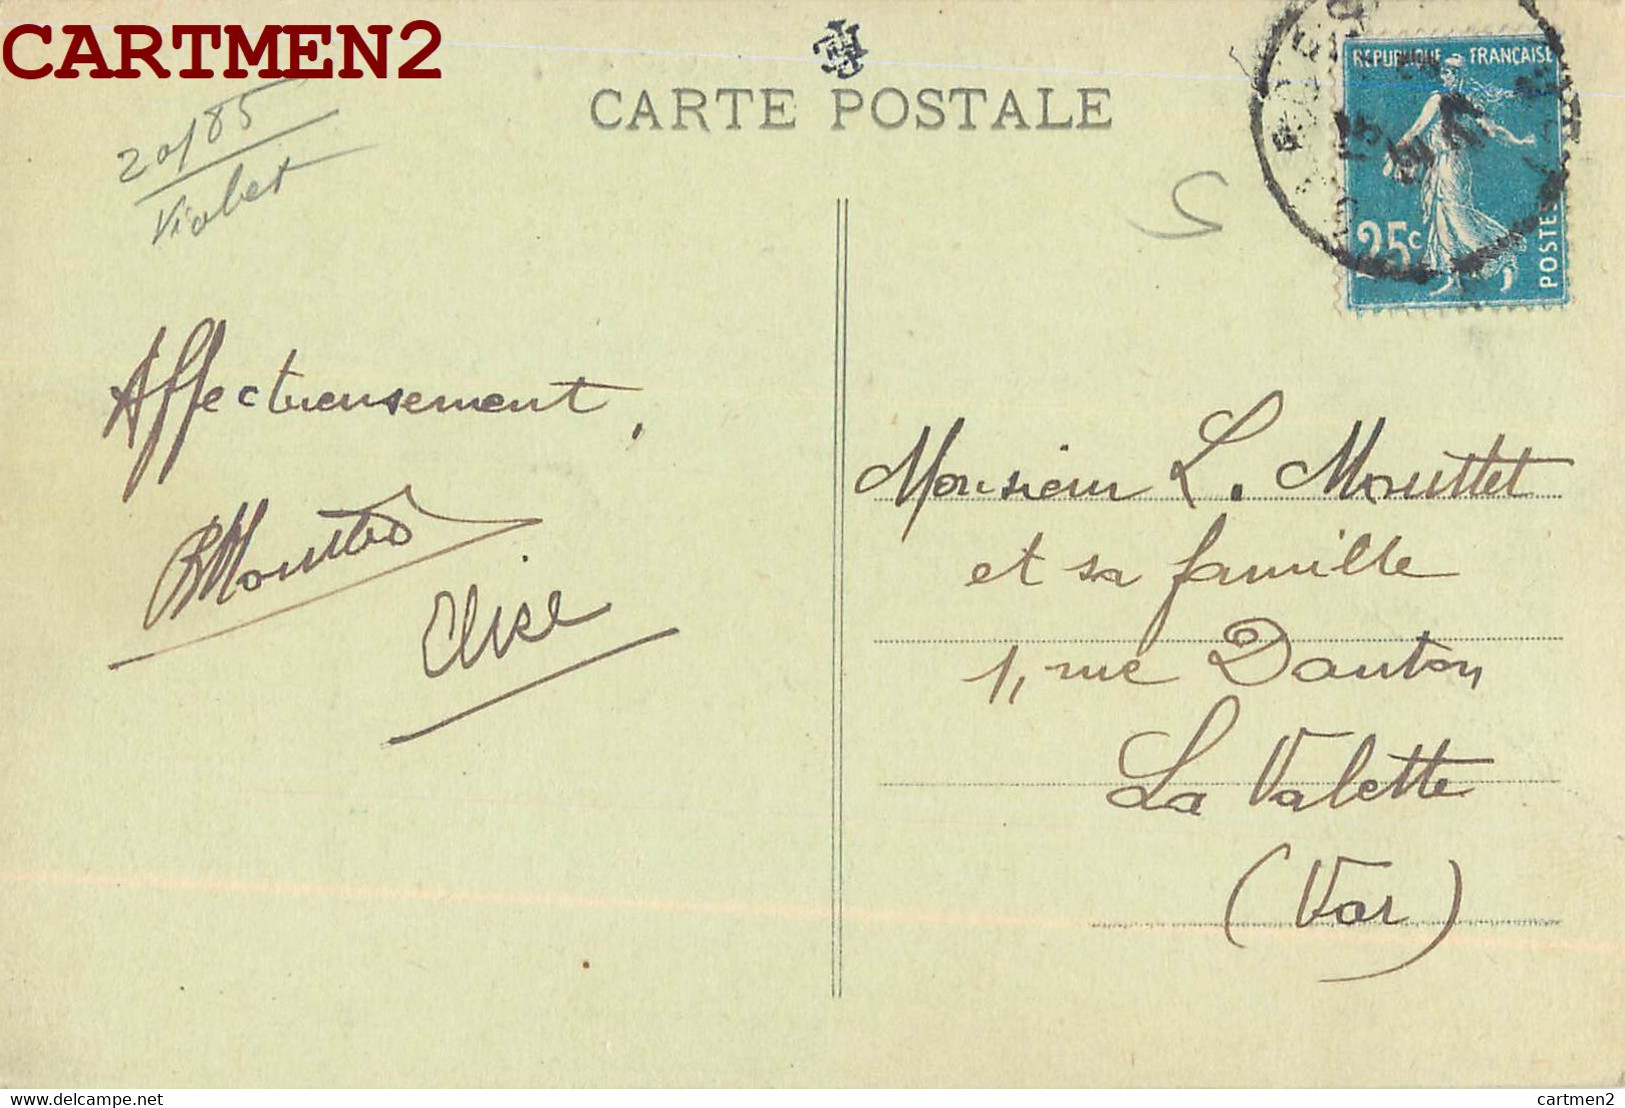 CARTMEN2
CARTE POSTALE
20185
Violet
REPUBLIQUE FRANÇAISE
25c
POSTES
Affectueusement,
Elise
Monsieur L. Mouttet
et sa famille
1, rue Danton
La Valette
(Var)
delcampe.net
cartmen2